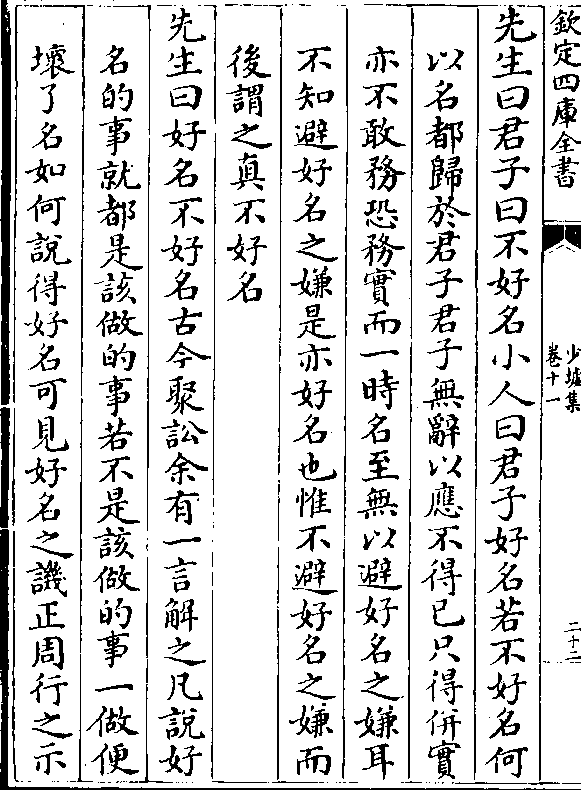 欽定四庫全書
少墟集
卷十一
二十二
先生曰君子曰不好名小人曰君子好名若不好名何
以名都歸於君子君子無辭以應不得已只得併實
亦不敢務恐務實而一時名至無以避好名之嫌耳
不知避好名之嫌是亦好名也惟不避好名之嫌而
後謂之真不好名
先生曰好名不好名古今聚訟余有一言解之凡說好
名的事就都是該做的事若不是該做的事一做便
壞了名如何說得好名可見好名之譏正周行之示